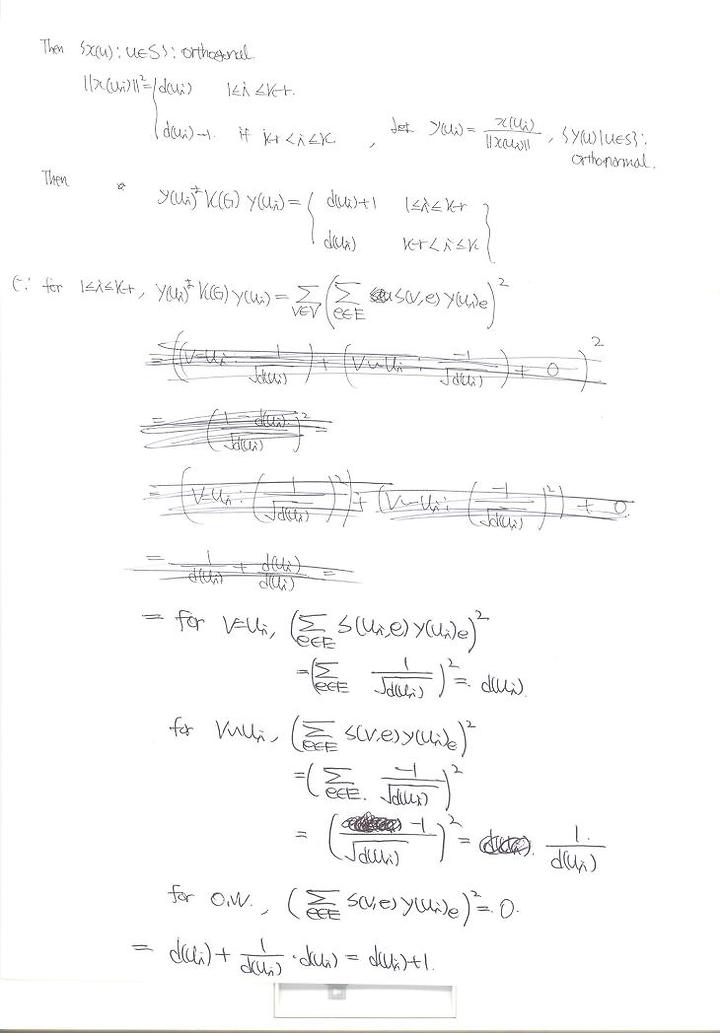 Then {x(u) : u∈S} : orthogonal.
||x(u_i)||² = { d(u_i) 1≤i≤k-r.
d(u_i)-1 if k-r<i≤k , Let y(u_i) = x(u_i) / ||x(u_i)|| , {y(u)|u∈S} : orthonormal.
Then
y(u_i)^T K(G) y(u_i) = { d(u_i)+1 1≤i≤k-r
d(u_i) k-r<i≤k
(∵ for 1≤i≤k-r, y(u_i)^T K(G) y(u_i) = Σ_{v∈V} ( Σ_{e∈E} s(v,e) y(u_i)_e )²
= ( ( v=u_i : 1/√d(u_i) ) + ( v~u_i : -1/√d(u_i) ) + 0 )²
= ( (1-d(u_i)) / √d(u_i) )² =
= ( v=u_i : ( 1/√d(u_i) )² ) + ( v~u_i : ( -1/√d(u_i) )² ) + 0
= 1/d(u_i) + d(u_i)/d(u_i) =
= for v=u_i, ( Σ_{e∈E} s(u_i,e) y(u_i)_e )²
= ( Σ_{e∈E} 1/√d(u_i) )² = d(u_i)
for v~u_i, ( Σ_{e∈E} s(v,e) y(u_i)_e )²
= ( Σ_{e∈E} -1/√d(u_i) )²
= ( -1/√d(u_i) )² = 1/d(u_i)
for O.W., ( Σ_{e∈E} s(v,e) y(u_i)_e )² = 0.
= d(u_i) + 1/d(u_i) · d(u_i) = d(u_i)+1.